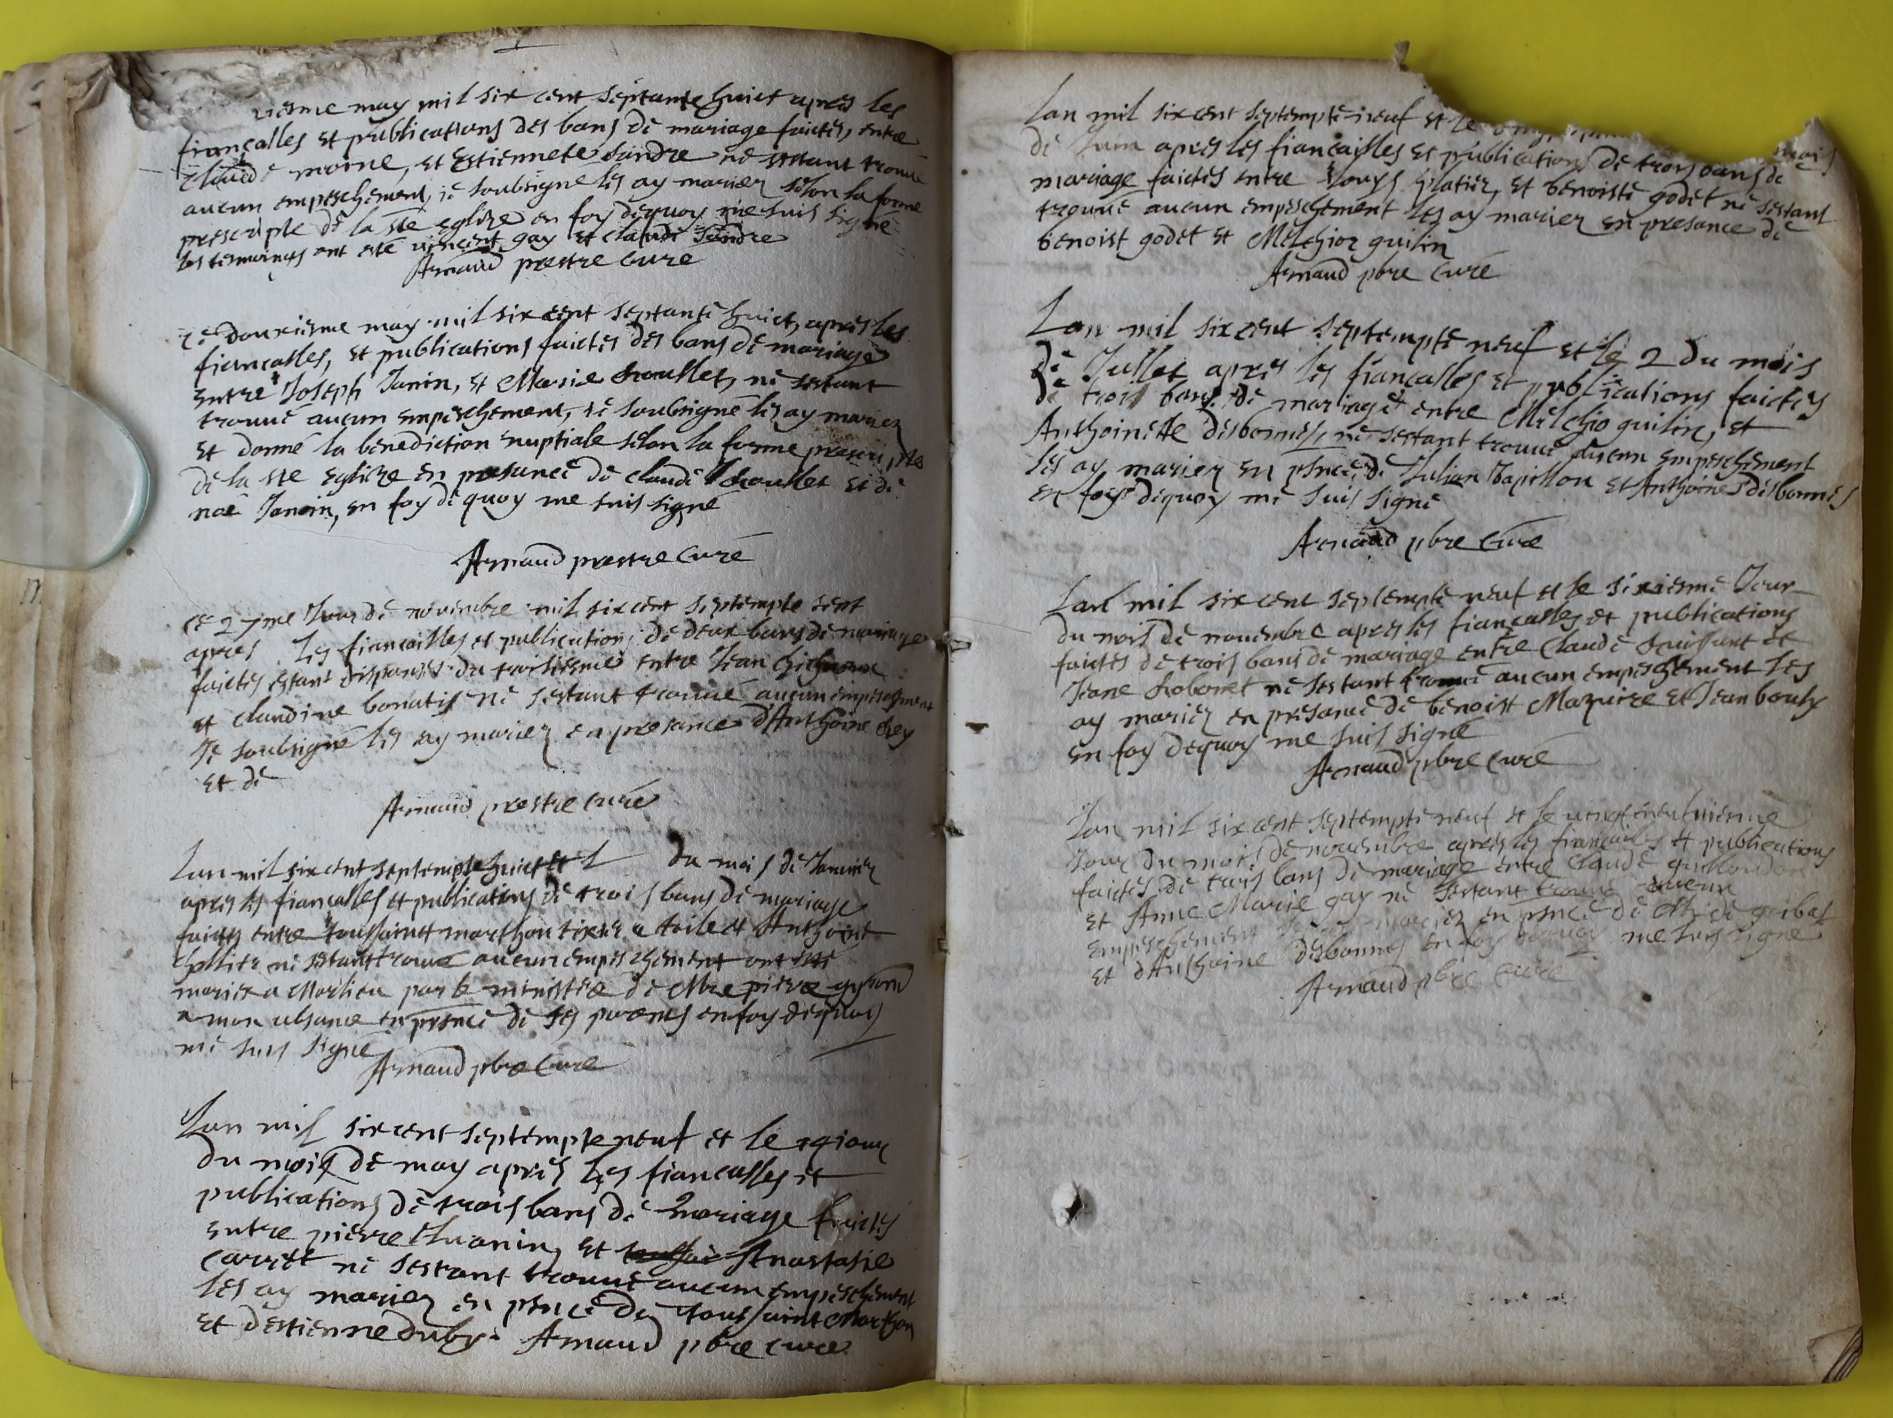 viesme may mil six cent septante huict apres les
fiançalles et publications des bans de mariage faictes entre
Claude moine, et Estiennete Sandre ne sestant trouve
aucun empeschement, ie soubsigne les ay marier selon la forme
prescripte de la ste eglize en foy dequoy me suis signé
les termoings ont esté vincent gay et claude Sandre
Arnaud prestre Curé
Ce douxiesme may mil six cent septante huict, apres les
fiancalles, et publications faictes des bans de mariage
entre Joseph Janin, et Marie ne sestant
trouvé aucun empeschement, ie soubsigné les ay marier
et donné la benediction nuptiale selon la forme prescripte
de la ste Eglize en presance de claude et de
noé Janin, en foy de quoy me suis signé
Arnaud prestre Curé
ce 27me Jour de novembre mil six cent septempte sept
apres les fiancailles et publications de deux bans de mariage
faictes estant dispansés du troisiesme entre Jean
et claudine bonatif ne sestant trouvé aucun empeschement
Je soubsigné les ay marier en presance d'Anthoine
et de
Arnaud prestre Curé
Lan mil six cent septempte huict et l du mois de Janvier
apres les fiancalles et publications de trois bans de mariage
faictes entre toussainct marthon tixier a toile et Anthoinet
ne sestant trouvé aucun empeschement ont esté
marier a Morlieu par le ministere de Mre pierre
a mon absance en presnce de ses parents en foy dequoy
me suis signe
Arnaud pbre Curé
Lan mil six cent septempte neuf et le jour
du mois de may apres les fiancalles et
publications de trois bans de mariage faictes
entre pierre et Anastasie
carret ne sestant trouvé aucun empeschement
les ay marier en presnce de toussaint Marthon
et destienne duby. Arnaud pbre Curé
Lan mil six cent septempte neuf et le mois
de Juin apres les fiancailles et publications de trois bans de
mariage faictes entre Louys platier, et benoiste godet ne sestant
trouvé aucun empeschement les ay marier en presance de
benoist godet et Melchior guilin
Arnaud pbre Curé
Lan mil six cent septempte neuf et le 2 du mois
de Juillet apres les fiancalles et publications faictes
de trois bans de mariage entre Melchio guilin, et
Anthoinette desbonnes, ne sestant trouvé aucun empeschement
les ay marier en presnce de Julian Papillon et Anthoine desbonnes
en foy dequoy me suis signé
Arnaud pbre Curé
Lan mil six cent septempte neuf et le sixiesme Jour
du mois de novembre apres les fiancalles et publications
faictes de trois bans de mariage entre Claude et
Jeane ne sestant trouvé aucun empeschement les
ay marier en presance de benoist Mazuire et Jean bouly
en foy dequoy me suis signé
Arnaud pbre Curé
Lan mil six cent septempte neuf et le vingt
Jour du mois de novembre apres les fiancailles et publications
faictes de trois bans de mariage entre Claude
et Anne Marie gay ne sestant trouvé aucun
empeschement les ay marier en presnce de
et d'Anthoine desbonnes en foy dequoy me suis signé
Arnaud pbre Curé